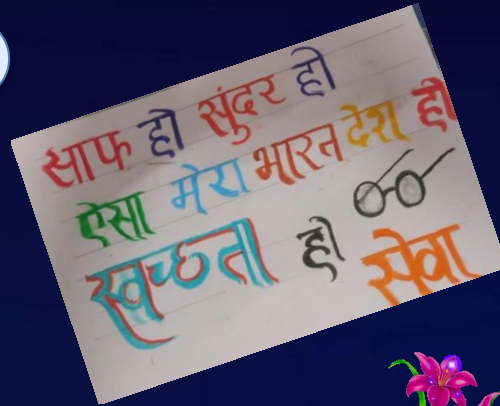 साफ हो सुंदर हो
ऐसा मेरा भारत देश हो
स्वच्छता ही सेवा